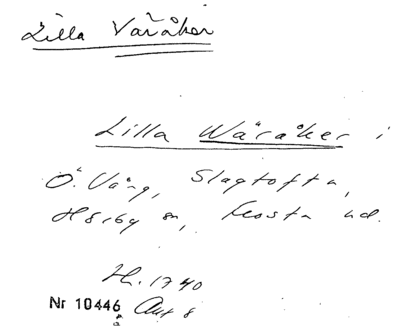 Lilla Våråker
Lilla Wäråker i
Ö. Vång, Slagtofta,
Hörby sn, Frosta hd.
H. 1740
Nr 10446 Akt 8